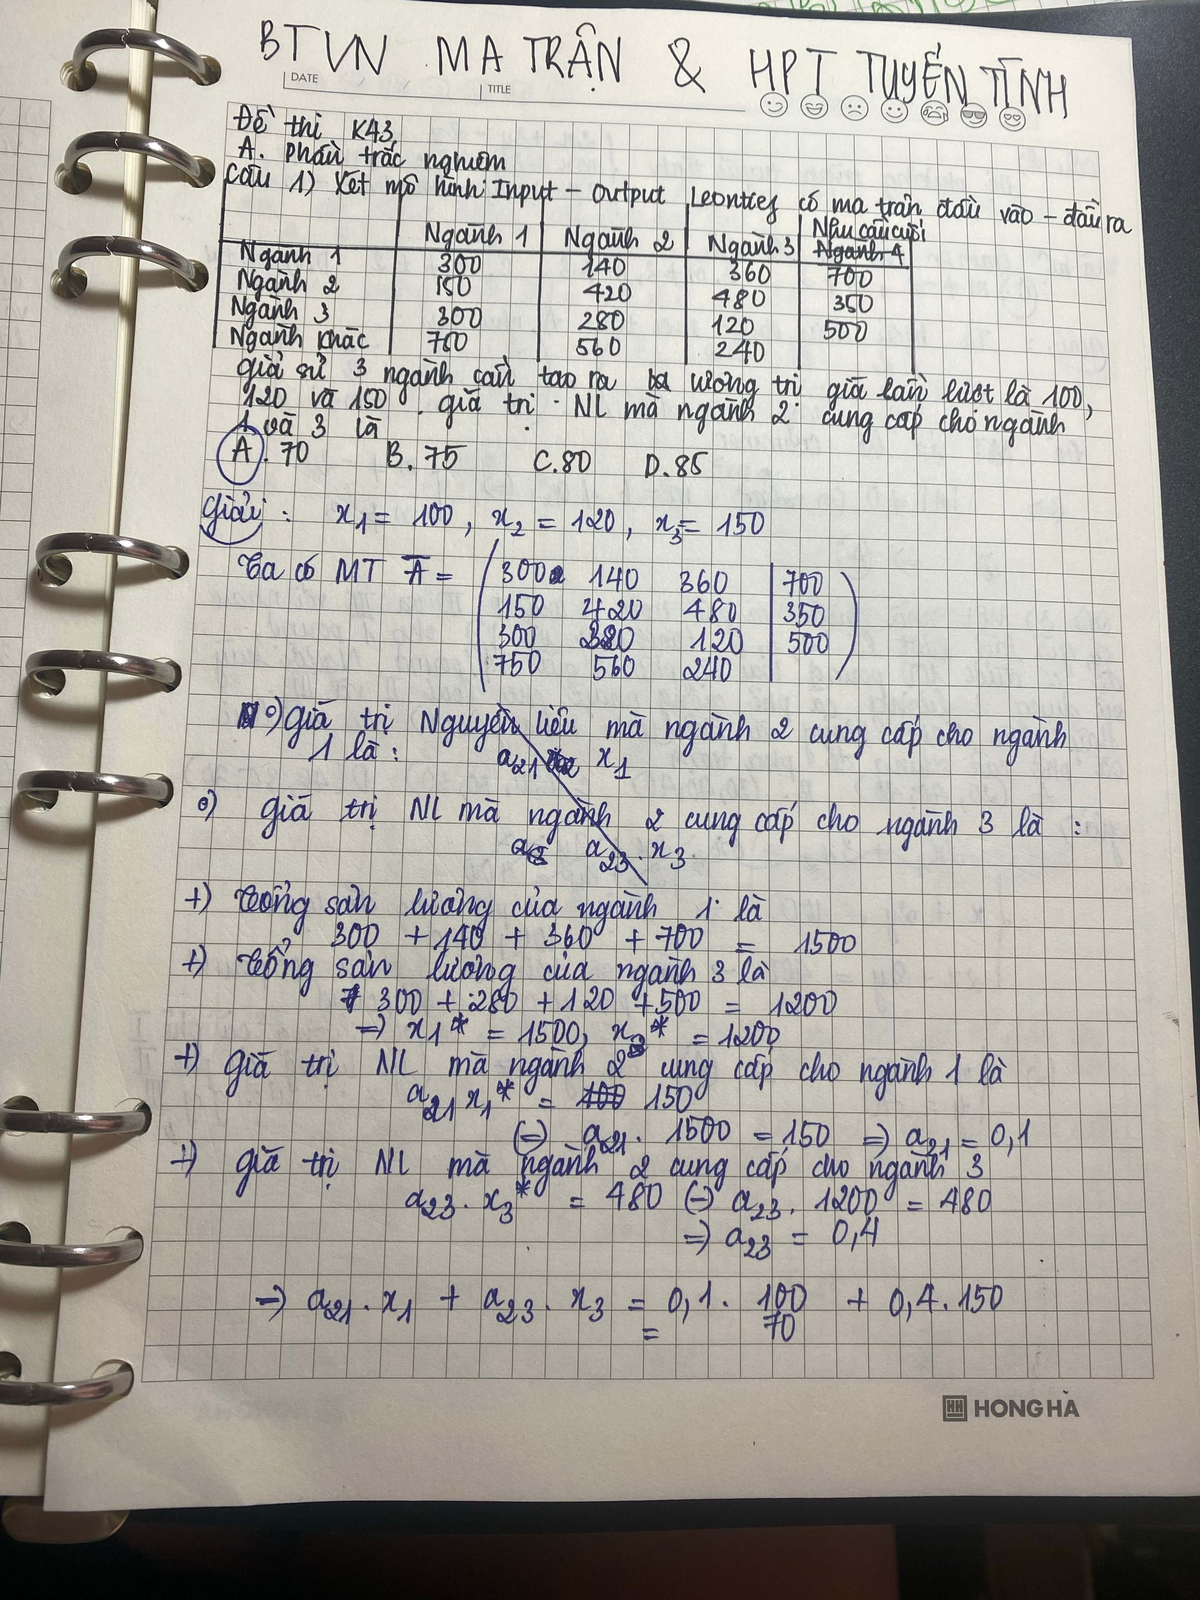 BTVN MA TRẬN & HPT TUYẾN TÍNH
DATE
TITLE
Đề thi K43
A. Phần trắc nghiệm
Câu 1) Xét mô hình Input - Output Leontief có ma trận đầu vào - đầu ra
Ngành 1 Ngành 2 Ngành 3 Nhu cầu cuối Ngành 4
Ngành 1 300 140 360 700
Ngành 2 150 420 480 350
Ngành 3 300 280 120 500
Ngành khác 750 560 240
giả sử 3 ngành cần tạo ra lượng trị giá lần lượt là 100,
120 và 150. giá trị NL mà ngành 2 cung cấp cho ngành
1 và 3 là
A. 70 B. 75 C. 80 D. 85
Giải: x1 = 100, x2 = 120, x3 = 150
Ta có MT A̅ = ( 300 140 360 | 700 )
150 420 480 | 350
300 280 120 | 500
750 560 240
o) giá trị Nguyên liệu mà ngành 2 cung cấp cho ngành
1 là: a21 x1
o) giá trị NL mà ngành 2 cung cấp cho ngành 3 là:
a23 . x3
+) Tổng sản lượng của ngành 1 là
300 + 140 + 360 + 700 = 1500
+) Tổng sản lượng của ngành 3 là
300 + 280 + 120 + 500 = 1200
=> x1* = 1500, x3* = 1200
+) giá trị NL mà ngành 2 cung cấp cho ngành 1 là
a21 x1* = 150
(=) a21 . 1500 = 150 => a21 = 0,1
+) giá trị NL mà ngành 2 cung cấp cho ngành 3
a23 . x3* = 480 (=) a23 . 1200 = 480
=> a23 = 0,4
=> a21 . x1 + a23 . x3 = 0,1 . 100 + 0,4 . 150
= 70
HONG HÀ